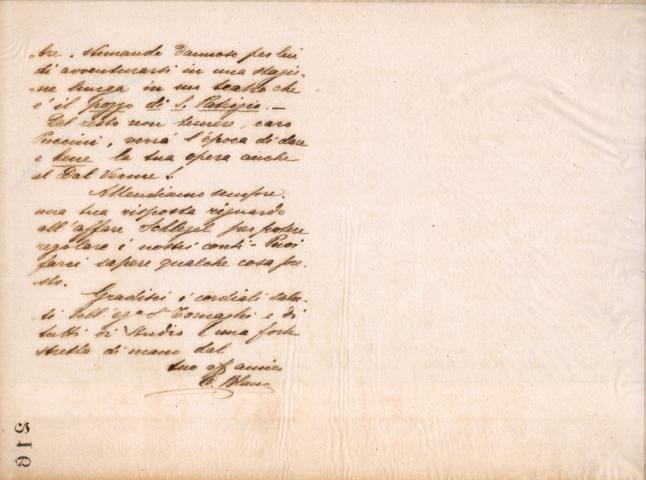 bre. stimando dannoso per lui
di avventurarsi in una stagio-
ne lunga in un teatro che
è il pozzo di S. Patrizio. —
Del resto non temere, caro
Puccini, verrà l'epoca di dare
e bene la tua opera anche
al Dal Verme!
Attendiamo sempre
una tua risposta riguardo
all'affare Schlegel per poter
regolare i nostri conti - Puoi
farci sapere qualche cosa pre-
sto.
Gradisci i cordiali salu-
ti dell' Sr Tornaghi e di
tutti di Studio e una forte
stretta di mano dal
tuo aff amico
C. Blanc
316